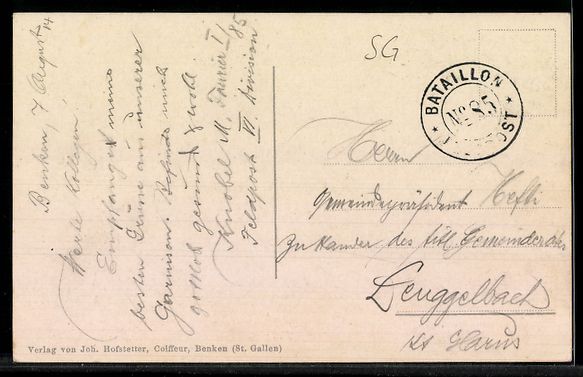 Benken, 7 August 14
Werte Kollegen!
Empfanget meine
besten Grüsse aus unserer
Garnison. Befinde mich
gottlob gesund & wohl.
Knobel M. Fourier I/85
Feldpost VI Division
SG
BATAILLON
No 85
Herrn
Gemeindepräsident Hefti
zu Handen des titl. Gemeinderates
Leuggelbach
Kt Glarus
Verlag von Joh. Hofstetter, Coiffeur, Benken (St. Gallen)